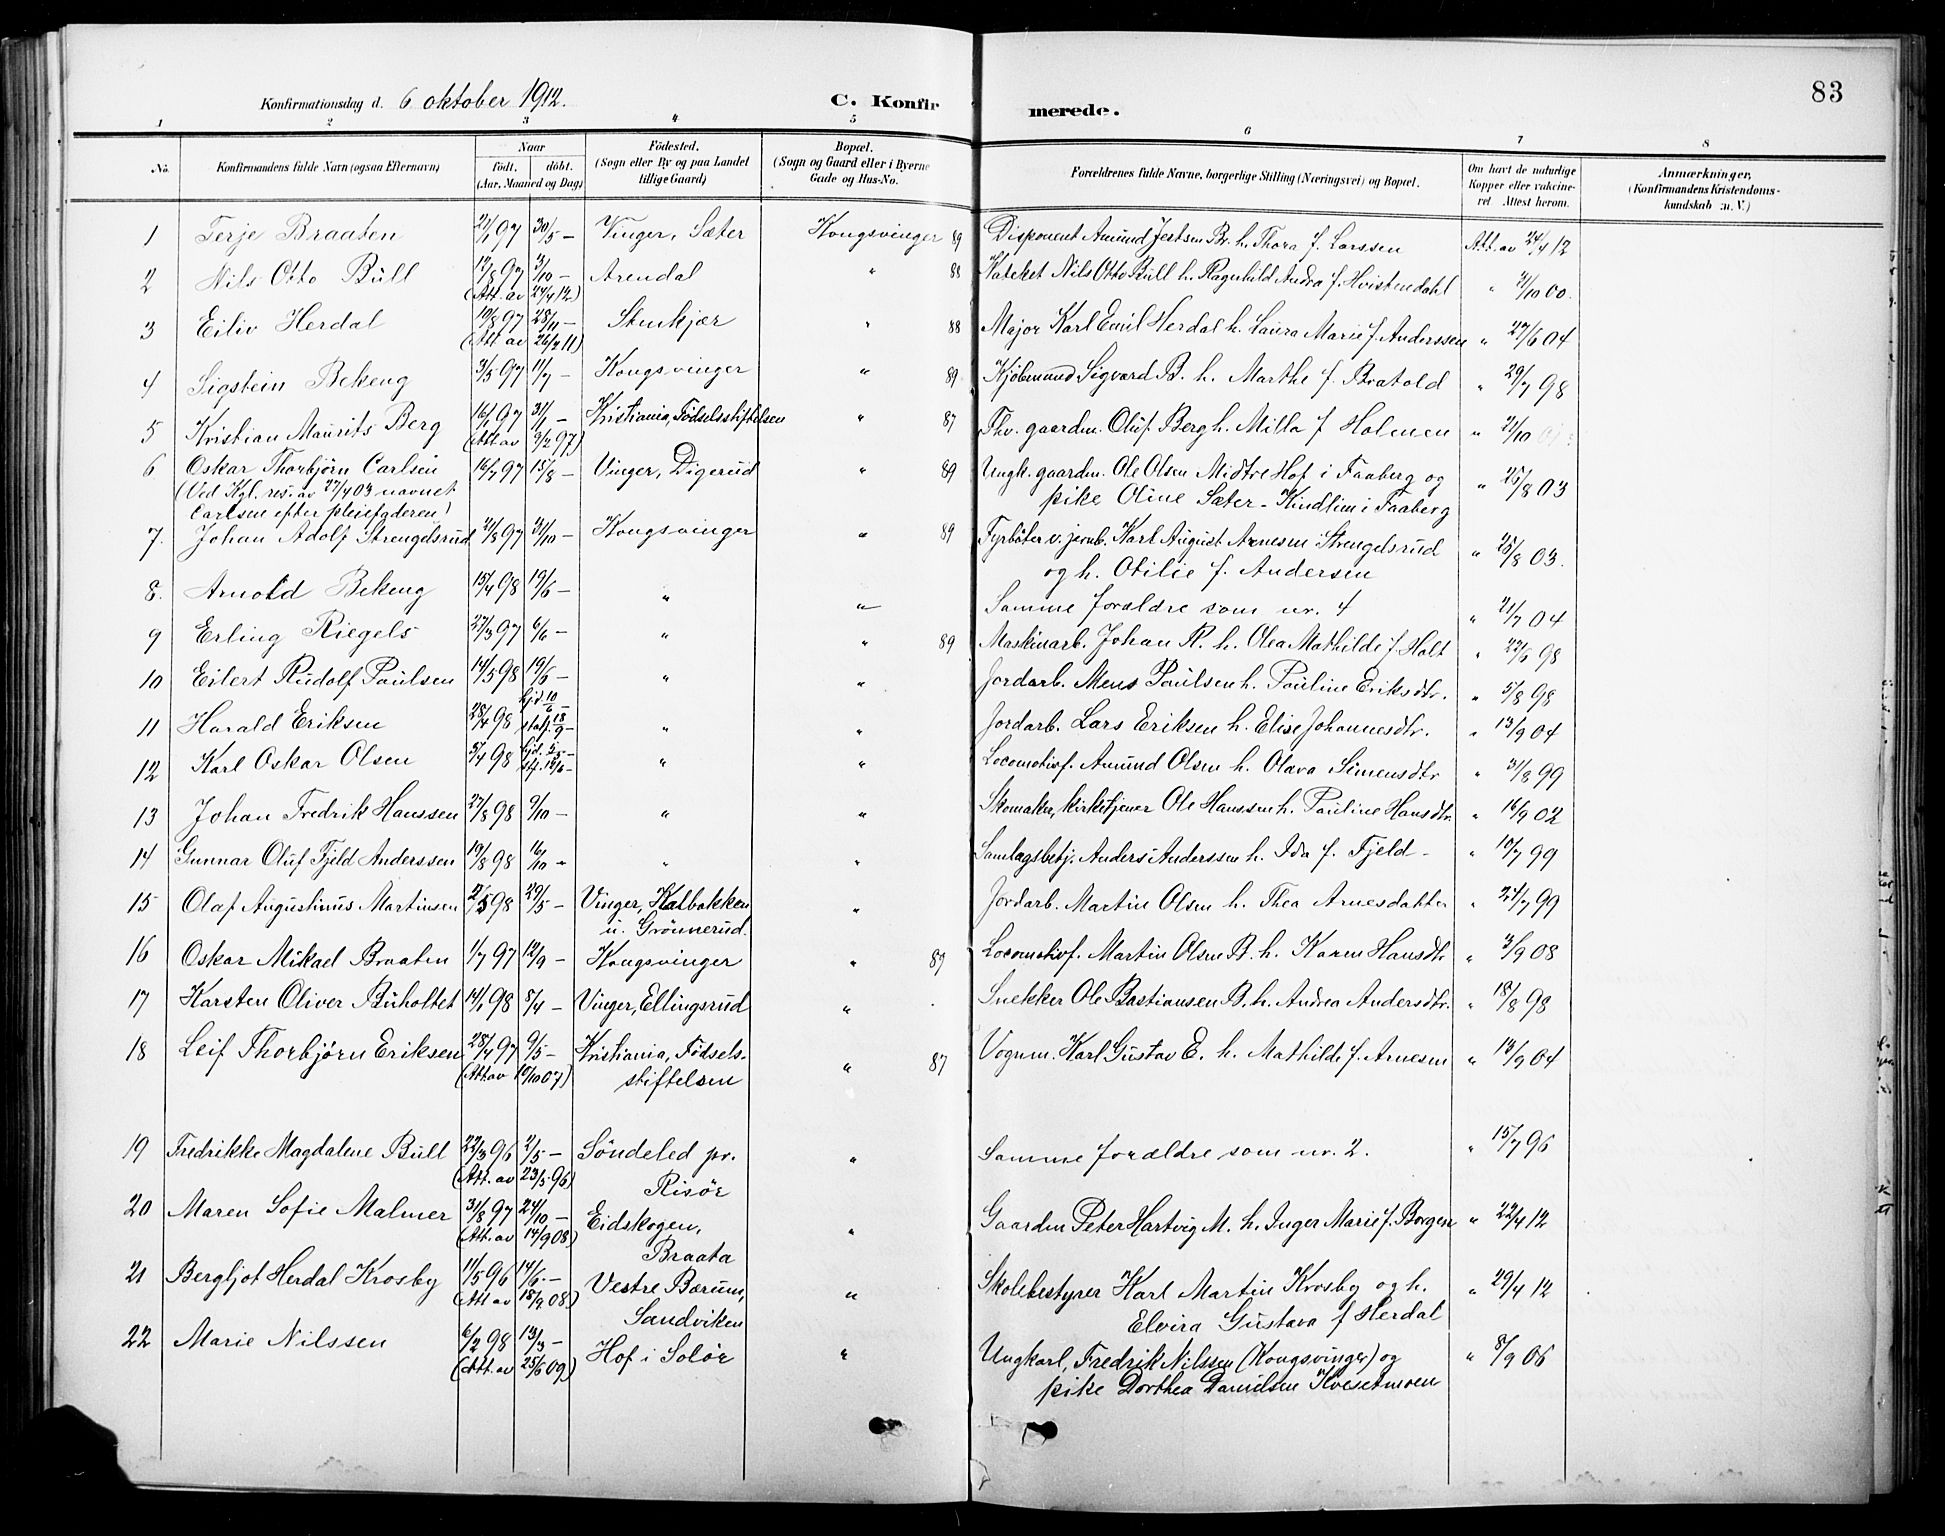 83
Konfirmationsdag d. 6 oktober 1912. C. Konfirmerede.
1 2 3 4 5 6 7 8
No. Konfirmandens fulde Navn (ogsaa Efternavn) Naar født, døbt. (Aar, Maaned og Dag) Fødested. (Sogn eller By og paa Landet tillige Gaard) Bopæl. (Sogn og Gaard eller i Byerne Gade og Hus-No. Forældrenes fulde Navne, borgerlige Stilling (Næringsvei) og Bopæl. Om havt de naturlige Kopper eller vaccineret Attest herom. Anmærkninger, (Konfirmandens Kristendomskundskab m. V.)
1 Terje Braaten 97 30/5 – Vinger, Sæter Kongsvinger 89 Disponent Amund Jertsen Br. h. Thora f. Larssen Att. av 24/4 12
2 Nils Otto Bull 17/8 97 3/10 – Arendal " 88 Kateket Nils Otto Bull h. Ragnhild Andra f. Hvistendahl " 21/10 00.
(Att. av 24/4 12)
3 Eiliv Herdal 19/8 97 28/11 – Stenkjær " 88 Major Karl Emil Herdal h. Laura Marie f. Anderssen " 27/6 04
(Att av 26/2 11)
4 Sigstein Bekeng 3/5 97 11/7 – Kongsvinger " 89 Kjøbmand Sigvard B. h. Marthe f. Bratold " 29/7 98
5 Kristian Maurits Berg 16/1 97 31/1 – Kristiania, Fødselsstiftelsen " 87 Fhv. gaardm. Oluf Berg h. Milla f Holmen " 21/10
(Att. av 9/2 97)
6 Oskar Thorbjørn Carlsen 16/7 97 15/8 – Vinger, Digerud " 89 Ungk. gaardm. Ole Olsen Midtre Hof i Faaberg og " 25/8 03
(Ved Kgl. res. av 27/4 03 navnet pike Oline Sæter - Kindlim i Faaberg
Carlsen efter pleiefaderen)
7. Johan Adolf Strengelsrud 21/8 97 31/10 – Kongsvinger " 89 Fyrbøter v. jernb. Karl August Arnesen Strengelsrud " 25/8 03.
og h. Otilie f. Andersen
8. Arnold Bekeng 15/4 98 19/6 – " " Samme forældre som nr. 4 " 21/7 04
9 Erling Riegels 27/3 97 6/6 – " " 89 Maskinarb. Johan R. h. Olea Mathilde f. Holt " 22/6 98
10 Eilert Rudolf Paulsen 14/5 98 19/6 – " " Jordarb. Mens Paulsen h. Pauline Eriksdtr. " 5/8 98
11 Harald Eriksen 28/4 98 hjd 10/6 – staf. 18/9 – " " Jordarb. Lars Eriksen h. Elise Johannesdtr. " 13/9 04
12 Karl Oskar Olsen 5/4 98 hjd. 5/5 – stf. 19/6 – " " Locomotivf. Amund Olsen h. Olava Simensdtr " 31/8 99
13 Johan Fredrik Hanssen 27/8 98 9/10 – " " Skomaker, kirketjener Ole Hanssen h. Pauline Hansdtr. " 16/9 02
14 Gunnar Oluf Fjeld Anderssen 19/8 98 16/10 – " " Samlagsbetj. Anders Anderssen h. Ida f. Fjeld – " 10/7 99
15 Olaf Augustinus Martinsen 2/5 98 29/5 – Vinger, Kalbakken " Jordarb. Martin Olsen h. Thea Arnesdatter " 24/7 99
u. Grönnerud.
16 Oskar Mikael Braaten 1/7 97 12/9 – Kongsvinger " 89 Locomotivf. Martin Olsen B. h. Karen Hansdtr " 3/9 08
17 Karsten Oliver Buholtet 14/1 98 8/4 – Vinger, Ellingsrud " Snekker Ole Bastiansen B. h. Andrea Andersdtr. " 18/8 98
18 Leif Thorbjørn Eriksen 28/4 97 9/5 – Kristiania, Fødsels- " 87 Vognm. Karl Gustav E. h. Mathilde f. Arnesen " 13/9 04
(Att av 19/10 07) stiftelsen
19 Fredrikke Magdalene Bull 22/3 96 2/5 – Söndeled pr. " Samme forældre som nr. 2. " 15/7 96
(Att. av 23/5 96) Risör
20 Maren Sofie Malmer 31/8 97 24/10 – Eidskogen, " Gaardm Peter Hartvig M. h. Inger Marie f. Borgen " 22/4 12
(Att. av 14/9 08) Braata
21 Bergljot Herdal Krosby 11/5 96 14/6 – Vestre Bærum, " Skolebestyrer Karl Martin Krosby og h. " 29/4 12
(Att av 18/9 08) Sandviken Elvira Gustava f Herdal
22 Marie Nilssen 6/2 98 13/3 – Hof i Solör " Ungkarl, Fredrik Nilssen (Kongsvinger) og " 8/9 06
(Att. av 25/6 09) pike Dorthea Danielsen Kvesetmoen